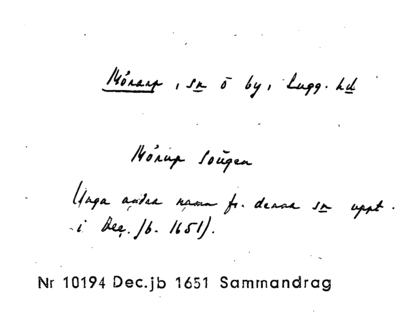 Mörarp, sn o by, Lugg. hd
Mörup Soügen
(Inga andra namn fr. denna sn uppt.
i Dec. jb. 1651).
Nr 10194 Dec.jb 1651 Sammandrag